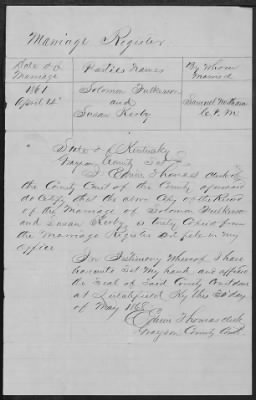 Marriage Register
Date of Marriage
Parties Names
By Whom Married
1861
April 14th
Solomon Fulkerson
and
Susan Kerby
Samuel
C. P. M.
State of Kentucky
Grayson County Sct
I Edwin Thomas clerk of
the County Court of the County aforesaid
do certify that the above Copy of the Record
of the Marriage of Solomon Fulkerson
and Susan Kerby is truly Copied from
the Marriage Register on file in my
Office
In Testimony Whereof I have
hereunto Set My hand and affixed
the Seal of Said County Court done
at Litchfield Ky this day
of May 1868
Edwin Thomas clerk
Grayson County Court